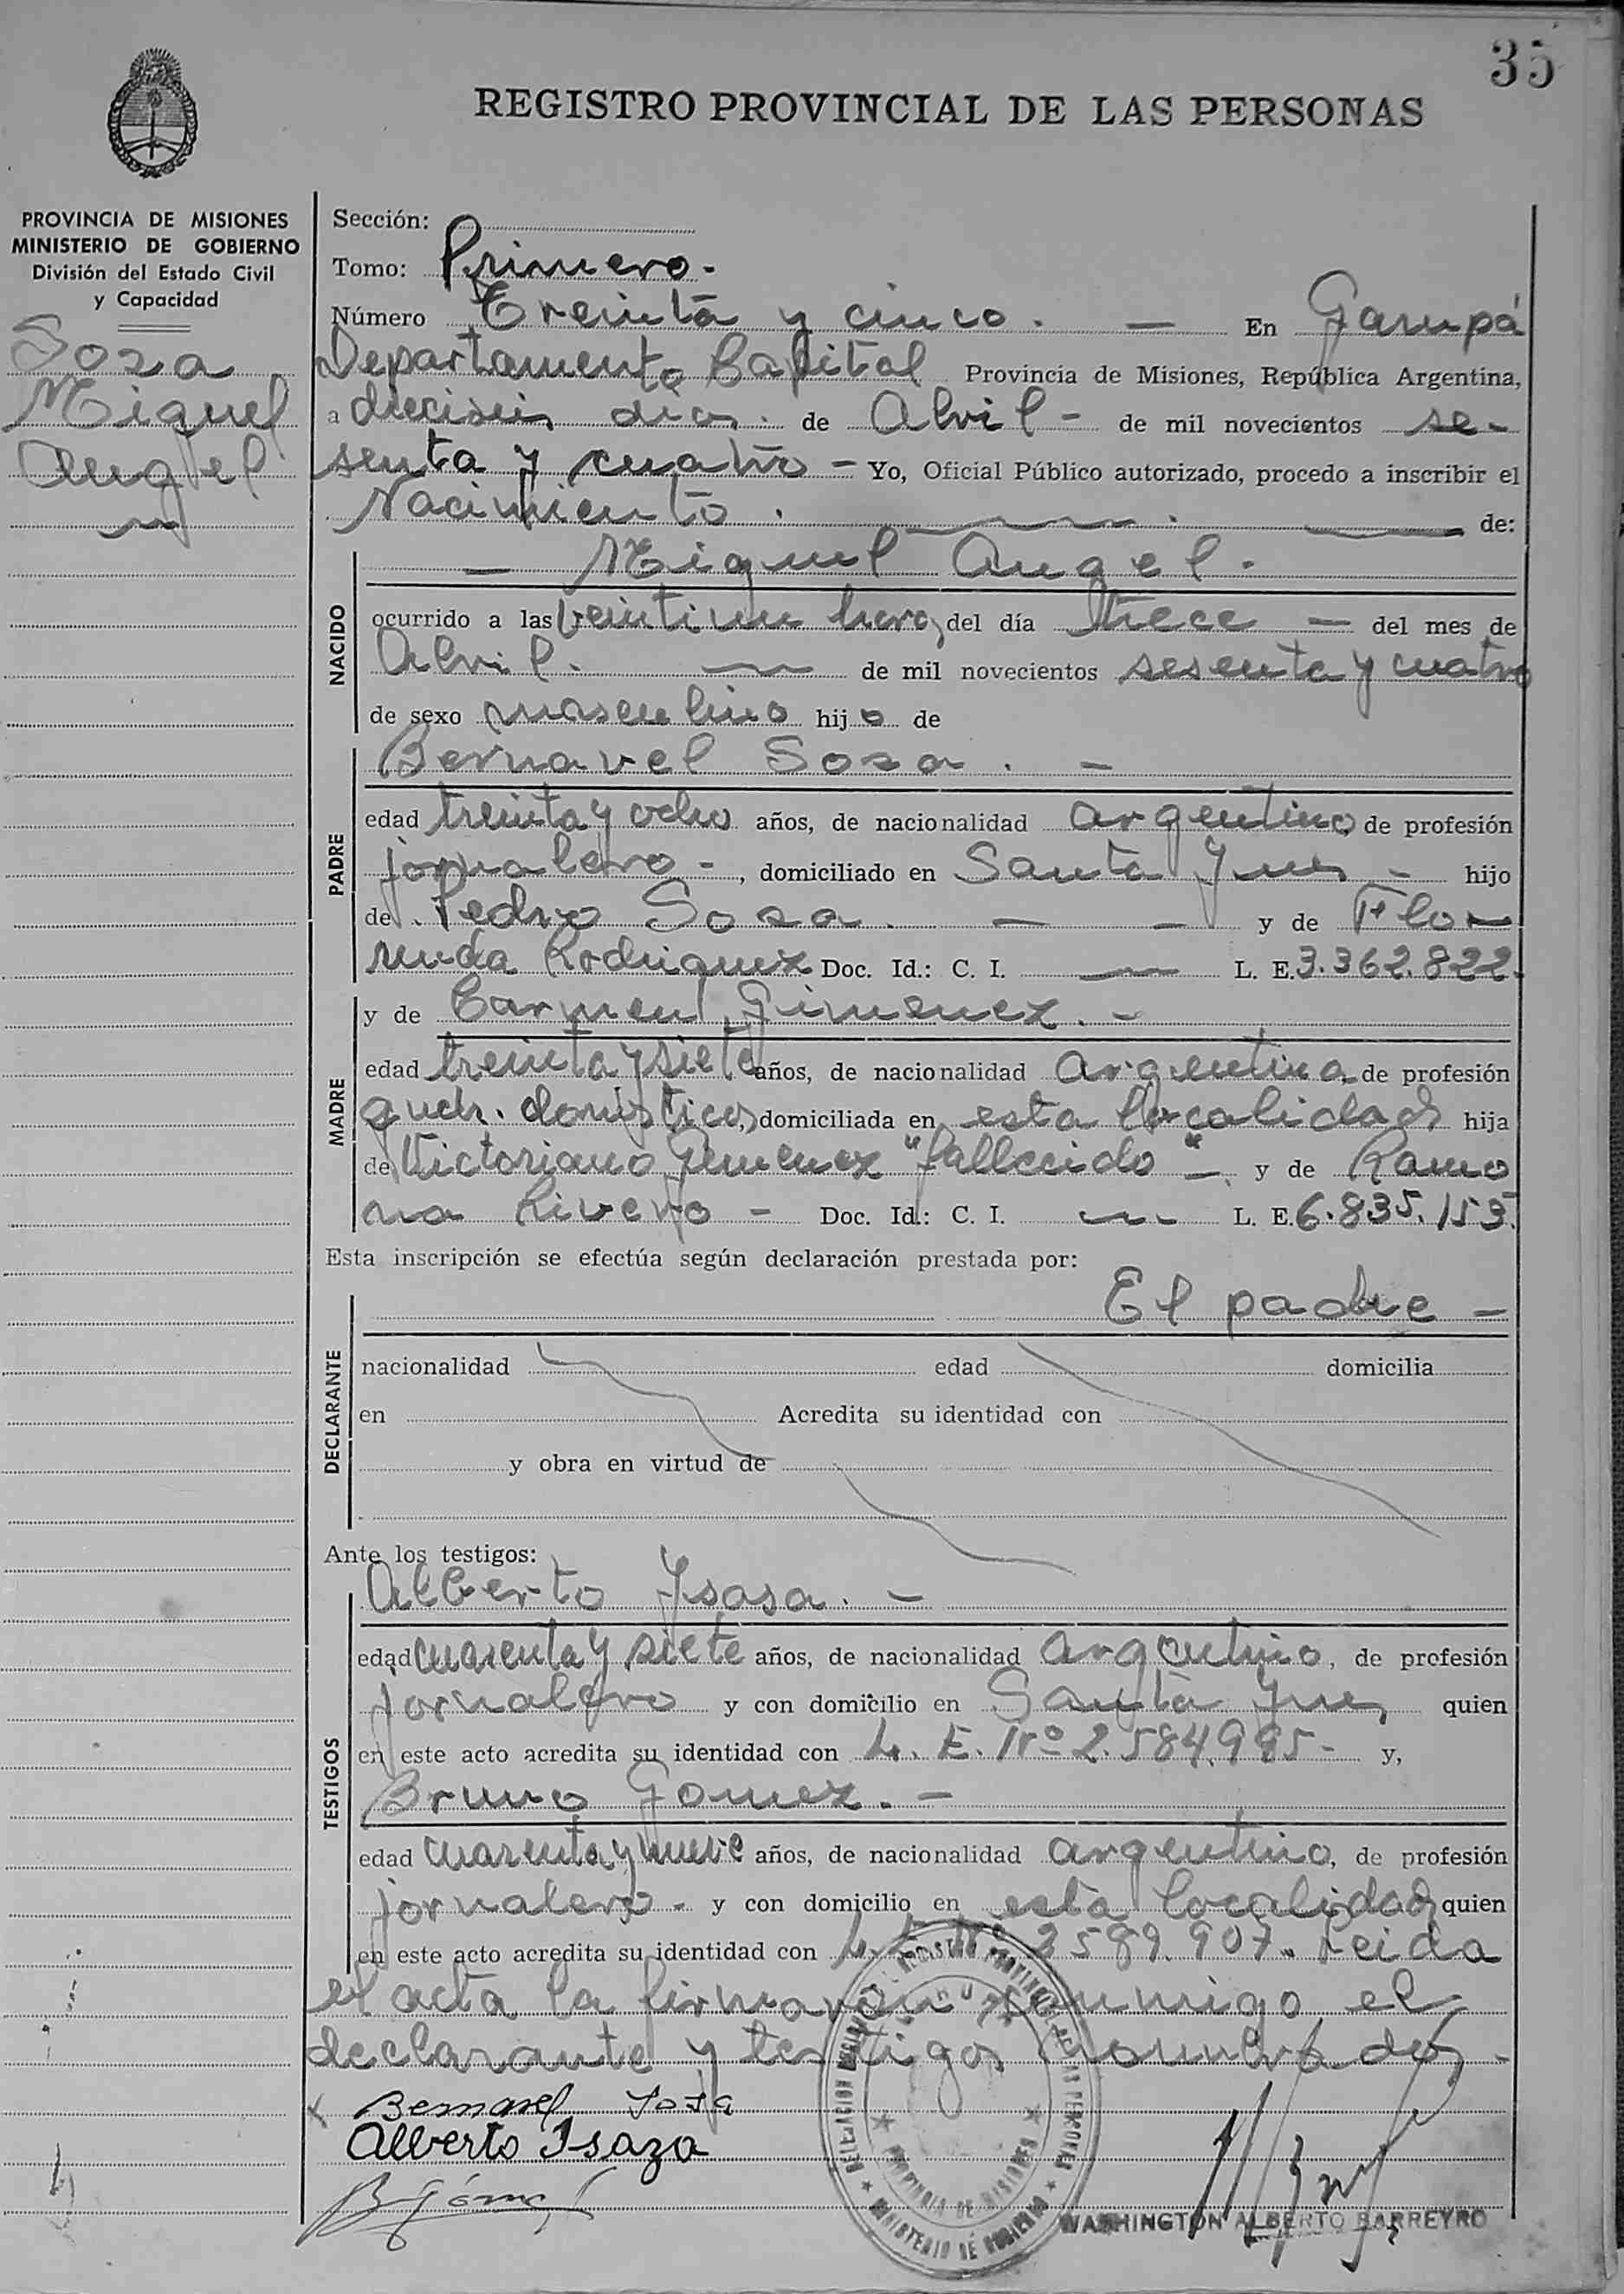 35
REGISTRO PROVINCIAL DE LAS PERSONAS
PROVINCIA DE MISIONES
MINISTERIO DE GOBIERNO
División del Estado Civil
y Capacidad
Sosa
Miguel
Angel
Sección:
Tomo: Primero.-
Número Treinta y cinco. — En Garupá
Departamento Capital Provincia de Misiones, República Argentina,
a dieciseis dias. de Abril - de mil novecientos se-
senta y cuatro - Yo, Oficial Público autorizado, procedo a inscribir el
Nacimiento . de:
NACIDO
— Miguel Angel.
ocurrido a las veintiun horas, del día trece — del mes de
Abril. — de mil novecientos sesenta y cuatro
de sexo masculino hijo de
PADRE
Bernavel Sosa . -
edad treinta y ocho años, de nacionalidad argentino, de profesión
jornalero - , domiciliado en Santa Ynes - hijo
de Pedro Sosa . — — y de Flo-
Rodriguez Doc. Id.: C. I. — L. E. 3.362.822.
MADRE
y de Carmen Gimenez. -
edad treinta y siete años, de nacionalidad argentina, de profesión
queh. domésticos, domiciliada en esta localidad hija
de Victoriano Gimenez "fallecido" - y de Ramo
na Rivero - Doc. Id.: C. I. — L. E. 6.835.153.
Esta inscripción se efectúa según declaración prestada por:
El padre —
DECLARANTE
nacionalidad edad domicilia
en Acredita su identidad con
y obra en virtud de
Ante los testigos:
TESTIGOS
Alberto Ysasa. -
edad cuarenta y siete años, de nacionalidad argentino, de profesión
jornalero y con domicilio en Santa Ynes, quien
en este acto acredita su identidad con L. E. Nº 2.584.995- y,
Bruno Gomez. -
edad cuarenta y nueve años, de nacionalidad argentino, de profesión
jornalero - y con domicilio en esta localidad quien
en este acto acredita su identidad con L. E. Nº 2589.907. Leida
el acta la firmaron conmigo el
declarante y testigos nombrados -
Bernavel Sosa
Alberto Isaza
B Gómez
REGISTRO PROVINCIAL DE LAS PERSONAS
PROVINCIA DE MISIONES
MINISTERIO DE GOBIERNO
WASHINGTON ALBERTO BARREYRO